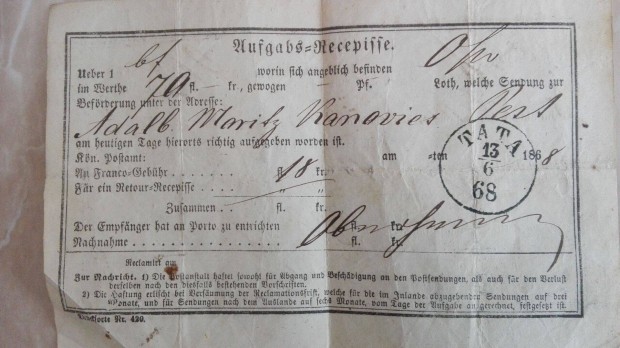 Aufgabs=Recepisse.
Ueber 1 bf worin sich angeblich befinden
im Werthe 70 fl. — kr., gewogen — Pf. Loth, welche Sendung zur
Beförderung unter der Adresse: Pest
Adalb. Moritz Kanovics
am heutigen Tage hierorts richtig aufgegeben worden ist.
Kön. Postamt: am -ten 1868
TATA
13
6
68
An Franco-Gebühr fl. 18 kr.
Für ein Retour-Recepisse „ „
Zusammen fl. kr.
Der Empfänger hat an Porto zu entrichten fl. kr.
Nachnahme
Reclamirt am
Zur Nachricht. 1) Die Postanstalt haftet sowohl für Abgang und Beschädigung an den Postsendungen, als auch für den Verlust
derselben nach den diesfalls bestehenden Vorschriften.
2) Die Haftung erlischt bei Versäumung der Reclamationsfrist, welche für die im Inlande abzugebenden Sendungen auf drei
Monate, und für Sendungen nach dem Auslande auf sechs Monate, vom Tage der Aufgabe an gerechnet, festgesetzt ist.
Nr. 420.